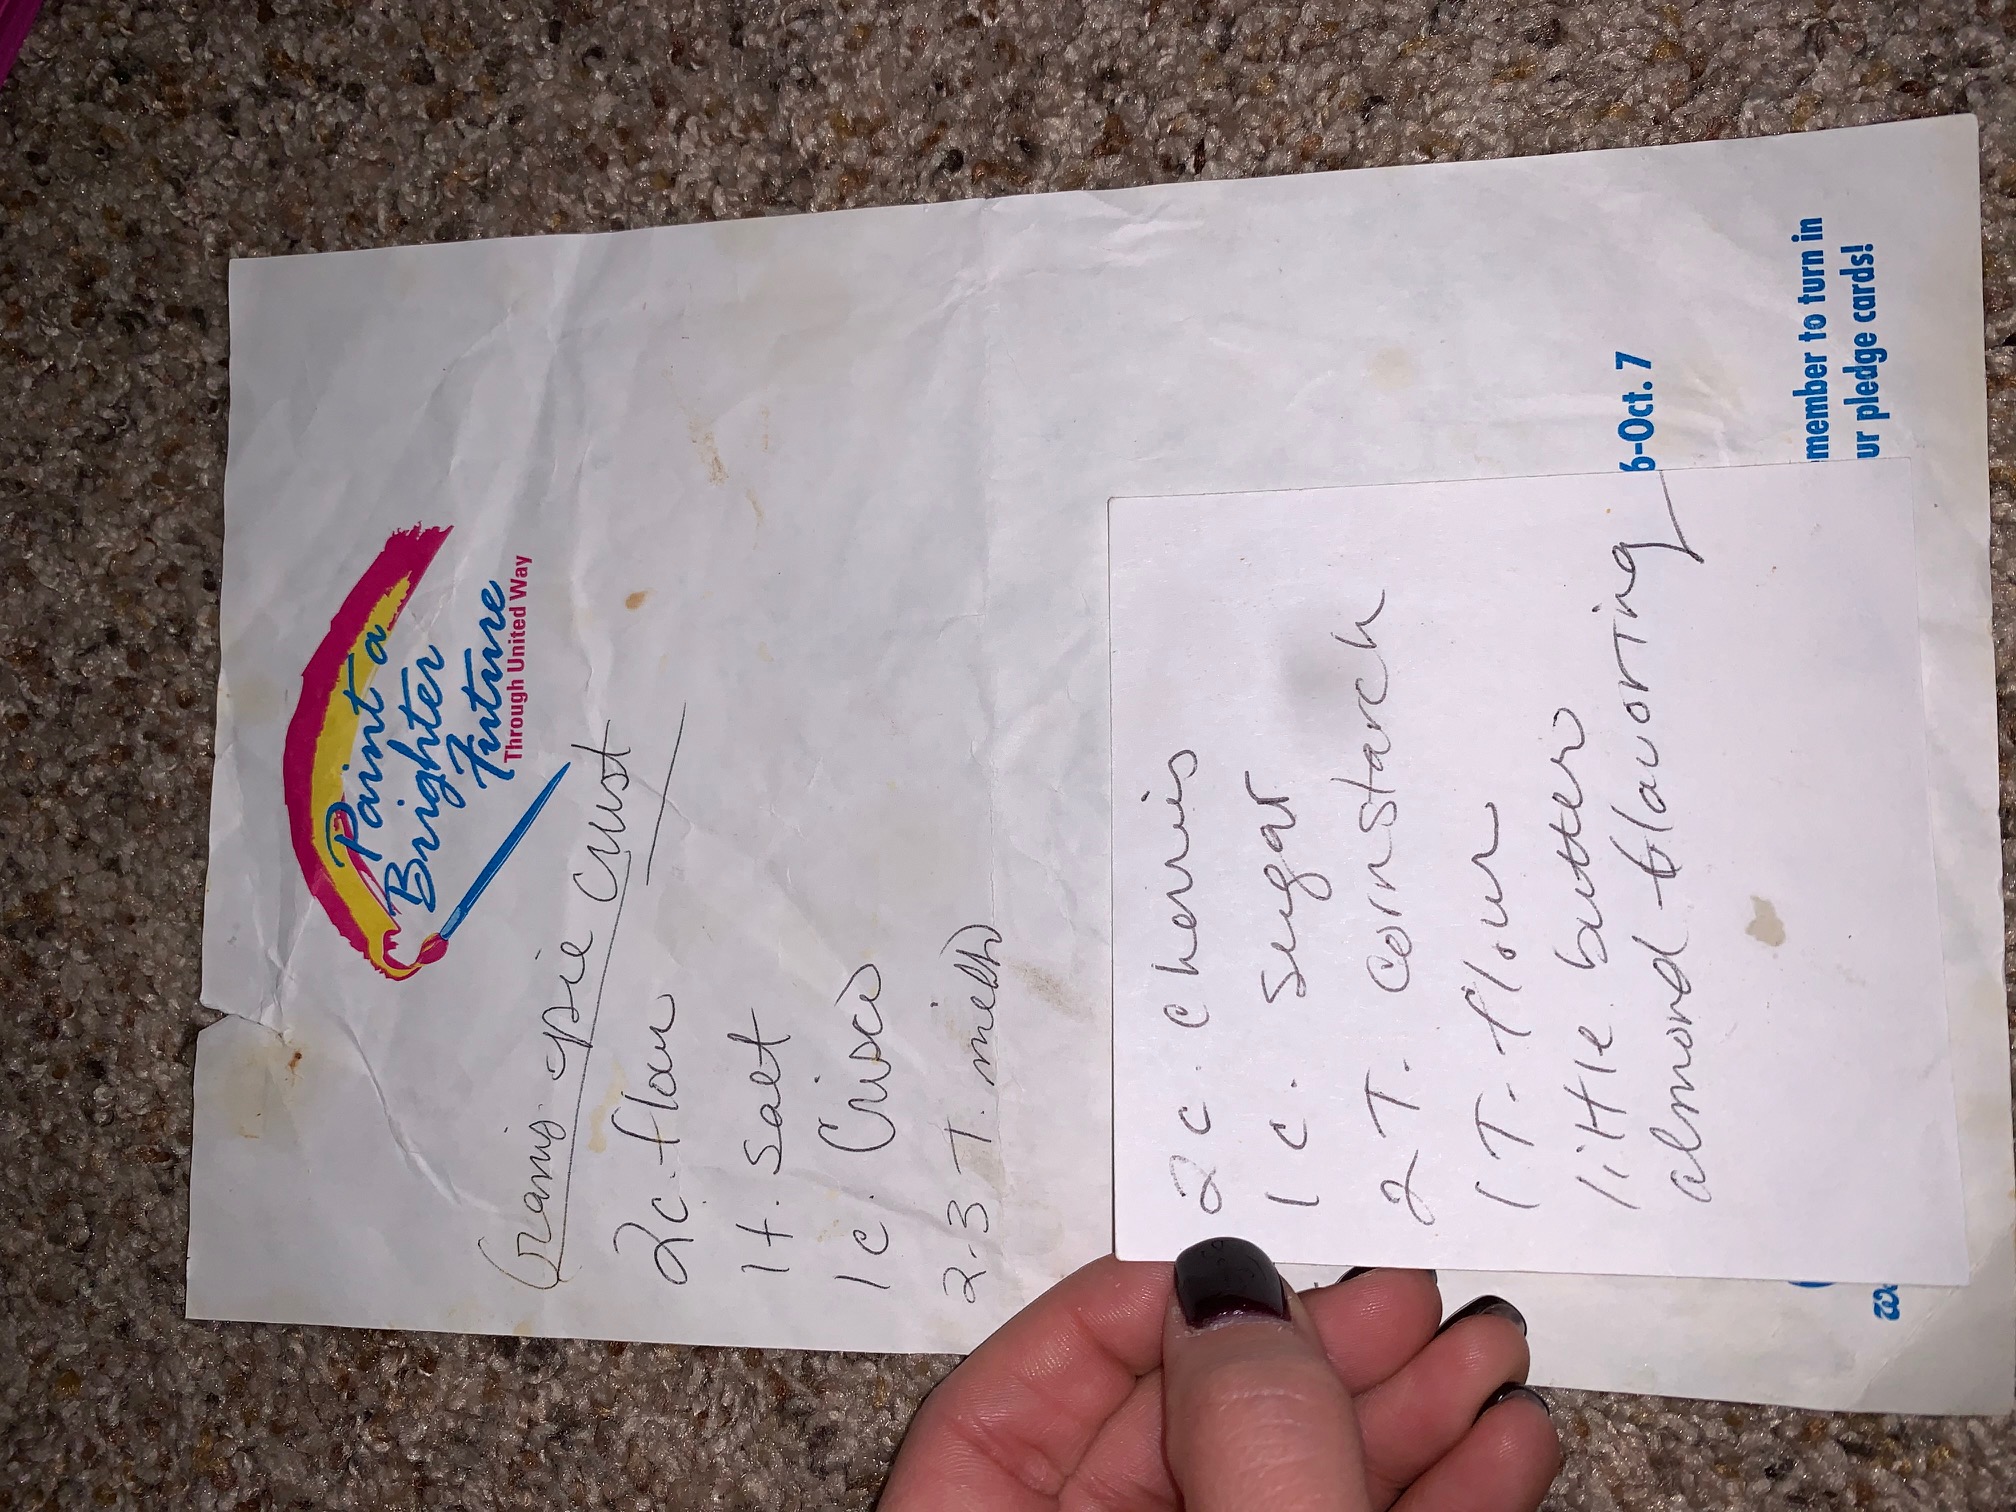 Paint a
Brighter
Future
Through United Way
Gram's pie crust
2c. flour
1t. salt
1c. Crisco
2-3 T. milk
2 c. cherries
1 c. sugar
2 T. cornstarch
1 T. flour
little butter
almond flavoring
6-Oct. 7
member to turn in
ur pledge cards!